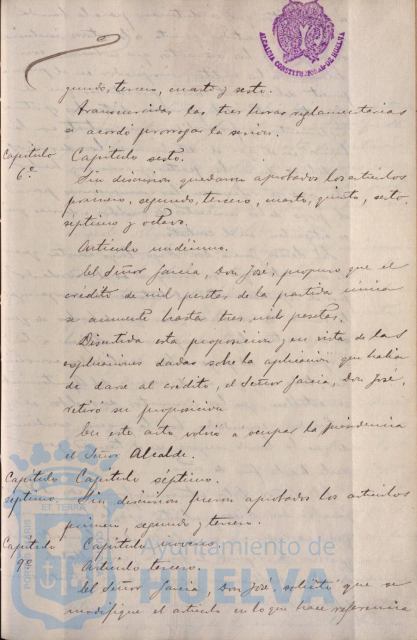 ALCALDIA CONSTITUCIONAL DE HUELVA
gundo, tercero, cuarto y sesto.
Transcurridas las tres horas reglamentarias
se acordó prorrogar la sesion.
Capítulo 6º
Capítulo sesto.
Sin discusion quedaron aprobados los artículos
primero, segundo, tercero, cuarto, quinto, sesto,
séptimo y octavo.
Artículo undécimo.
El Señor García, Don José, propuso que el
crédito de mil pesetas de la partida única
se aumente hasta tres mil pesetas.
Discutida esta proposicion, en vista de las
esplicaciones dadas sobre la aplicacion que habia
de darse al crédito, el Señor García, Don José,
retiró su proposicion
En este acto volvió a ocupar la presidencia
el Señor Alcalde.
Capítulo séptimo
Capítulo séptimo.
Sin discusion fueron aprobados los artículos
primero, segundo y tercero.
Capítulo 9º
Capítulo noveno.
Artículo tercero.
El Señor García, Don José, solicitó que se
modifique el artículo en lo que hace referencia
Ayuntamiento de
HUELVA